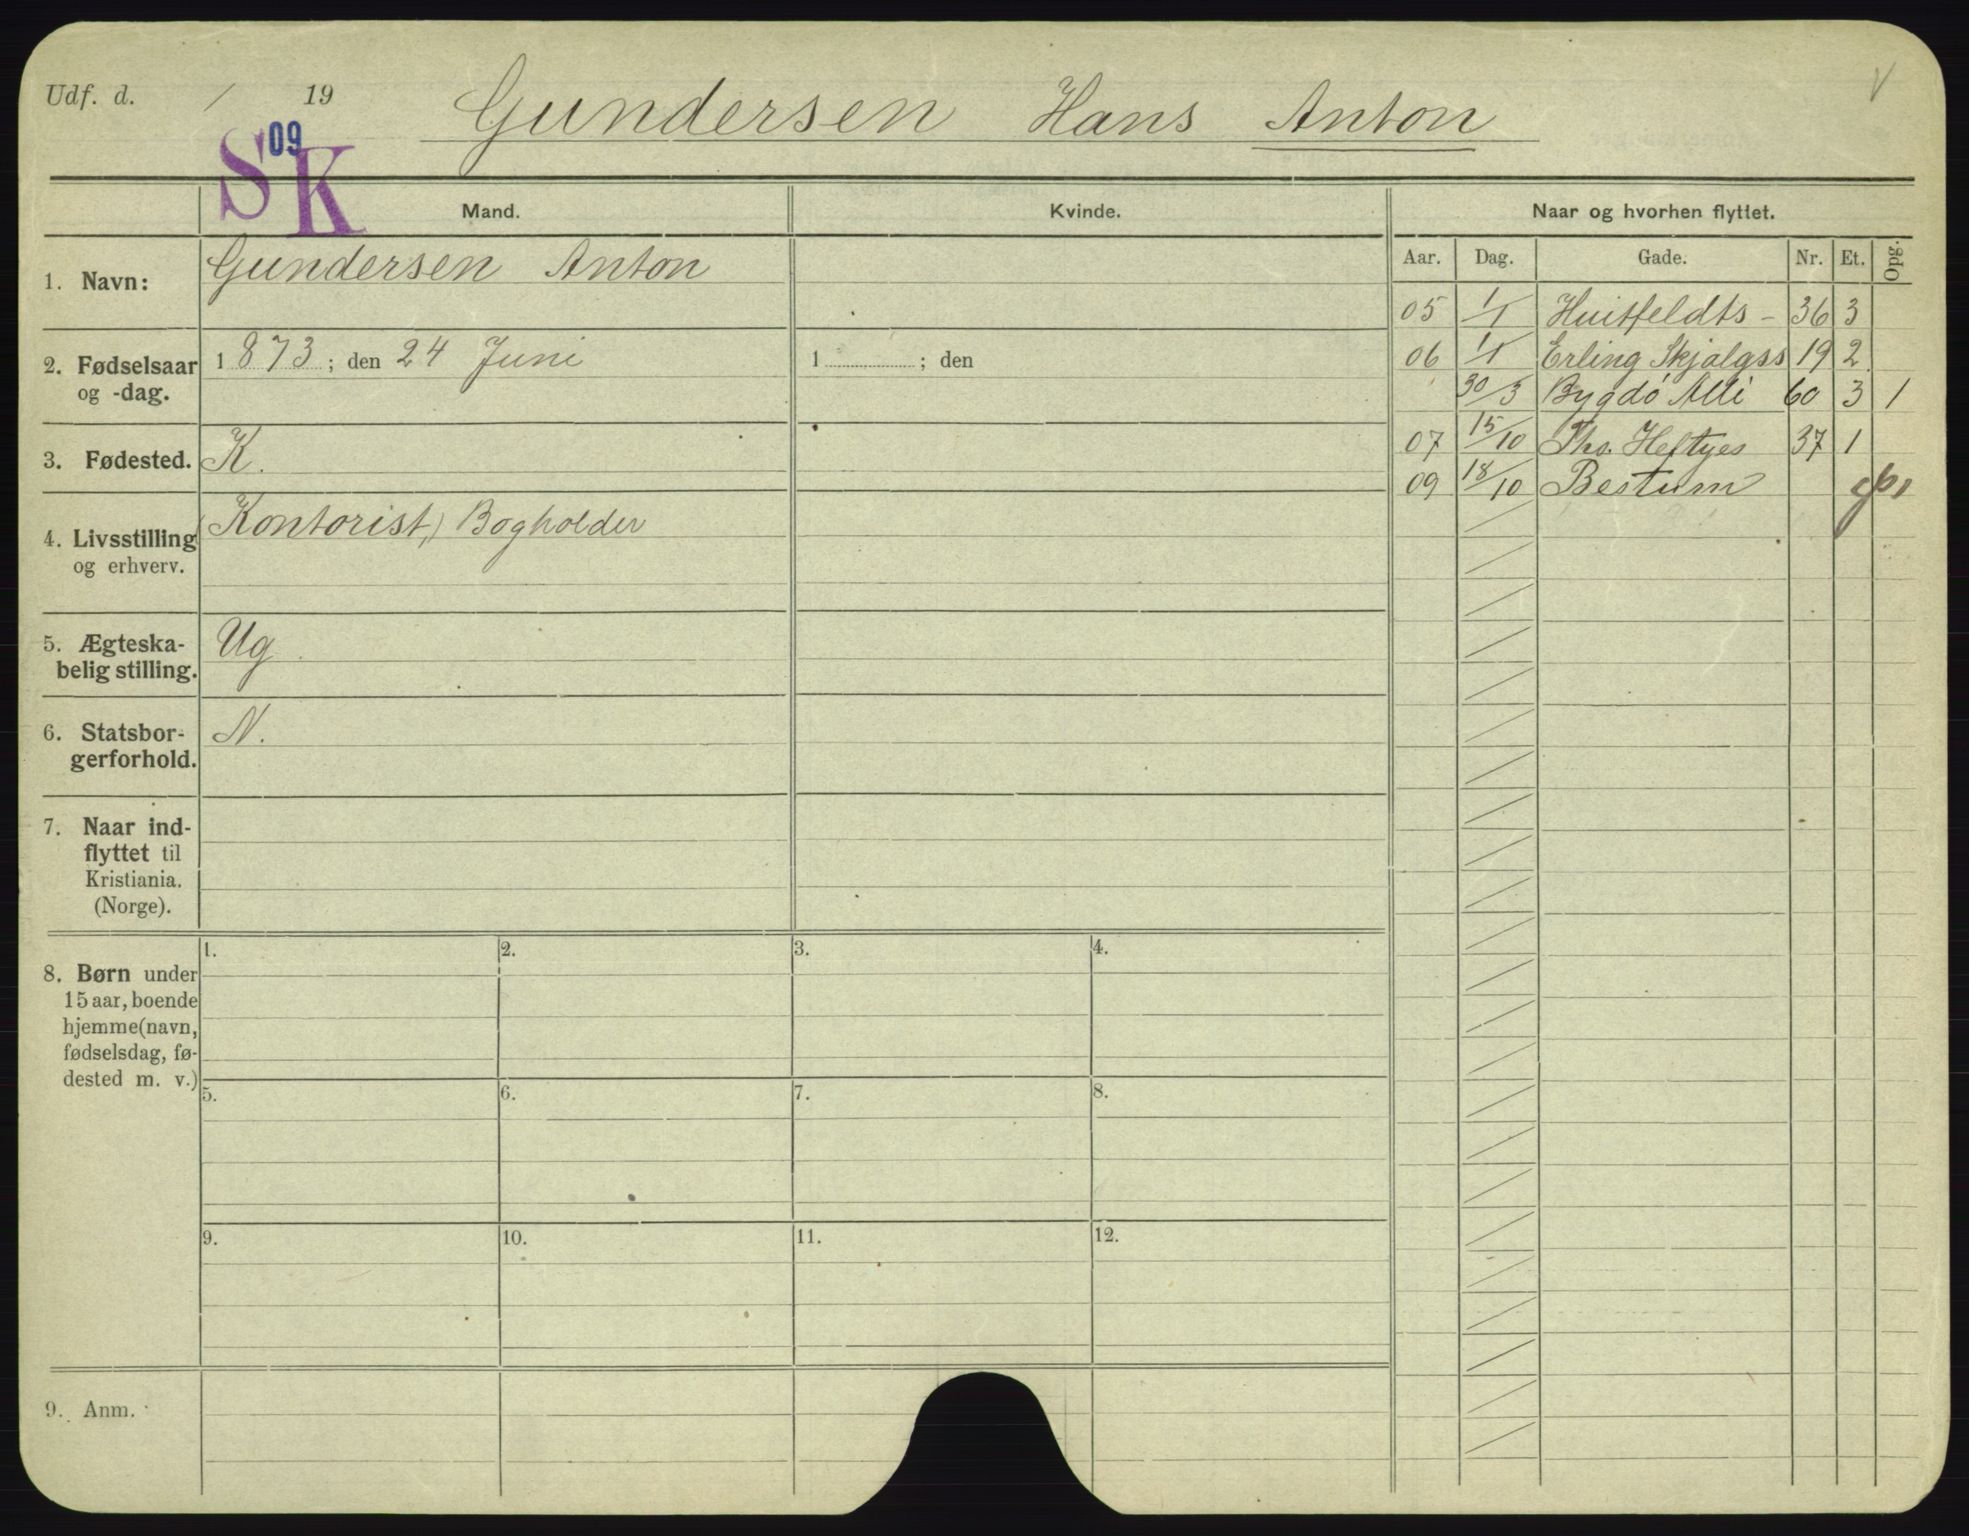 Udf. d. / 19 Gundersen Hans Anton V
S 09 K
Mand. Kvinde. Naar og hvorhen flyttet.
Aar. Dag. Gade. Nr. Et. Opg.
1. Navn: Gundersen Anton
05 1/1 Huitfeldts - 36 3
06 1/1 Erling Skjalgss 19 2
30/3 Bygdö Alle 60 3 1
07 15/10 Tho. Heftyes 37 1
09 18/10 Bestum
2. Fødselsaar 1873; den 24 Juni 1 ; den
og -dag.
3. Fødested. K.
(Kontorist,) Bogholder
4. Livsstilling
og erhverv.
5. Ægteska- Ug.
belig stilling.
6. Statsbor- N.
gerforhold.
7. Naar ind-
flyttet til
Kristiania.
(Norge).
1. 2. 3. 4.
8. Børn under
15 aar, boende
hjemme (navn,
fødselsdag, fø-
dested m. v.)
5. 6. 7. 8.
9. 10. 11. 12.
9. Anm.